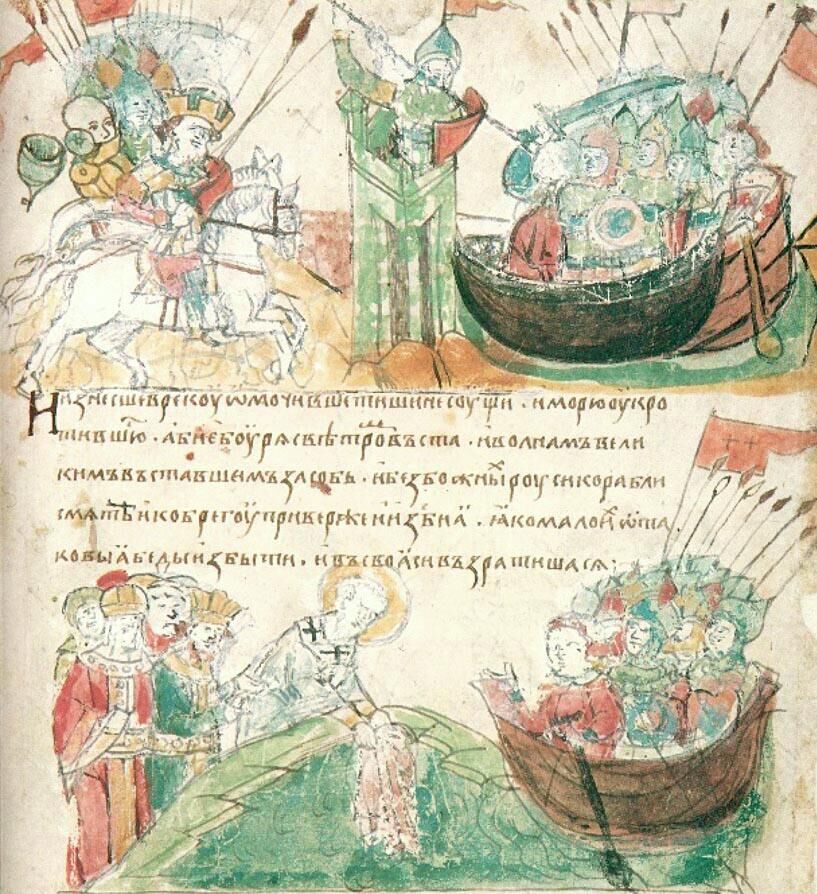 Низнесшеврекоуѡмочивше тишинесоущи · иморюоукро
тившюс · абиебоурясвѣтромвъста · иволнамъвели
кимъвъставшемъзасобь · ибезбожныхроусикорабли
смятеикобрегоупривержеиизбиа · ꙗкомалоихѿта
ковыабедыизбыти · ивъсвоасивъзратишася